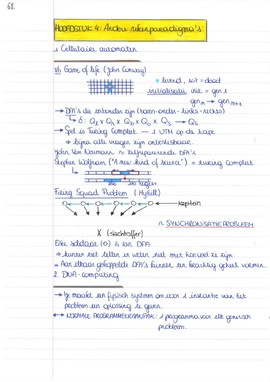 68.
HOOFDSTUK 4: Andere rekenparadigma's
1 Cellulaire automaten
Vb: Game of life (John Conway)
levend, wit = dood
initialisatie: gen = 1
gen n → gen n+1
→ DFA's die verbonden zijn (boven-onder-links-rechts)
↳ δ: Q₅ x Q₅ x Q₅ x Q₅ x Q₅ → Q₅
→ Spel is Turing Complet
→ bijna alle vragen zijn onbeslisbaar.
John Von Neumann → DFA's
Stephen Wolfram ("A new kind of science") = turing complet
Firing Squad Problem (Myhill)
kapitein
X (slachtoffer)
~ SYNCHRONISATIEPROBLEEM
Elke soldaat (O) is een DFA
→ kunnen niet tellen en weten niet met hoeveel ze zijn.
→ Aan elkaar gekoppelde DFA's kunnen een krachtig geheel vormen.
2. DNA-computing
→ Je maakt een fysisch systeem om aan 1 instantie van het
probleem een oplossing te geven.
↔ NORMALE PROGRAMMEERAANPAK: 1 programma voor elk generisch
probleem.